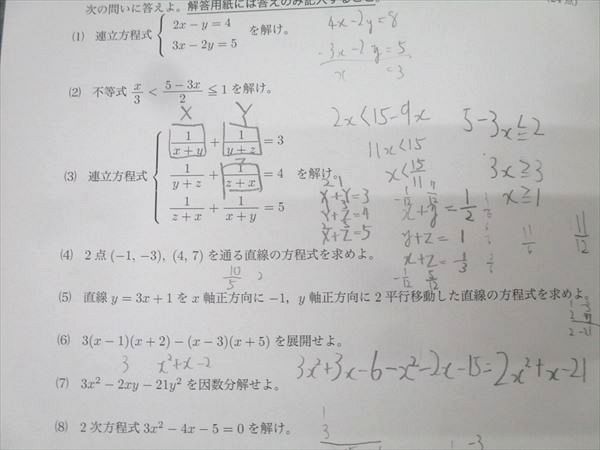 次の問いに答えよ。解答用紙には答えのみ記入すること。
(1) 連立方程式 { 2x − y = 4
3x − 2y = 5 を解け。
4x−2y=8
−3x−2y=5
x =3
(2) 不等式 x/3 < (5−3x)/2 ≦ 1 を解け。
2x<15−9x
11x<15
x<15/11
5−3x≦2
3x≧3
x≧1
X Y
(3) 連立方程式 { 1/(x+y) + 1/(y+z) = 3
1/(y+z) + 1/(z+x) = 4 を解け。
1/(z+x) + 1/(x+y) = 5
Z
X+Y=3
Y+Z=4
X+Z=5
x+y=1/2
y+z=1
x+z=1/3
11/6
11/12
(4) 2点 (−1, −3), (4, 7) を通る直線の方程式を求めよ。
10/5 2
(5) 直線 y = 3x + 1 を x 軸正方向に −1, y 軸正方向に 2 平行移動した直線の方程式を求めよ。
(6) 3(x−1)(x+2) − (x−3)(x+5) を展開せよ。
3 x²+x−2
3x²+3x−6−x²−2x−15=2x²+x−21
(7) 3x² − 2xy − 21y² を因数分解せよ。
(8) 2次方程式 3x² − 4x − 5 = 0 を解け。
1
3